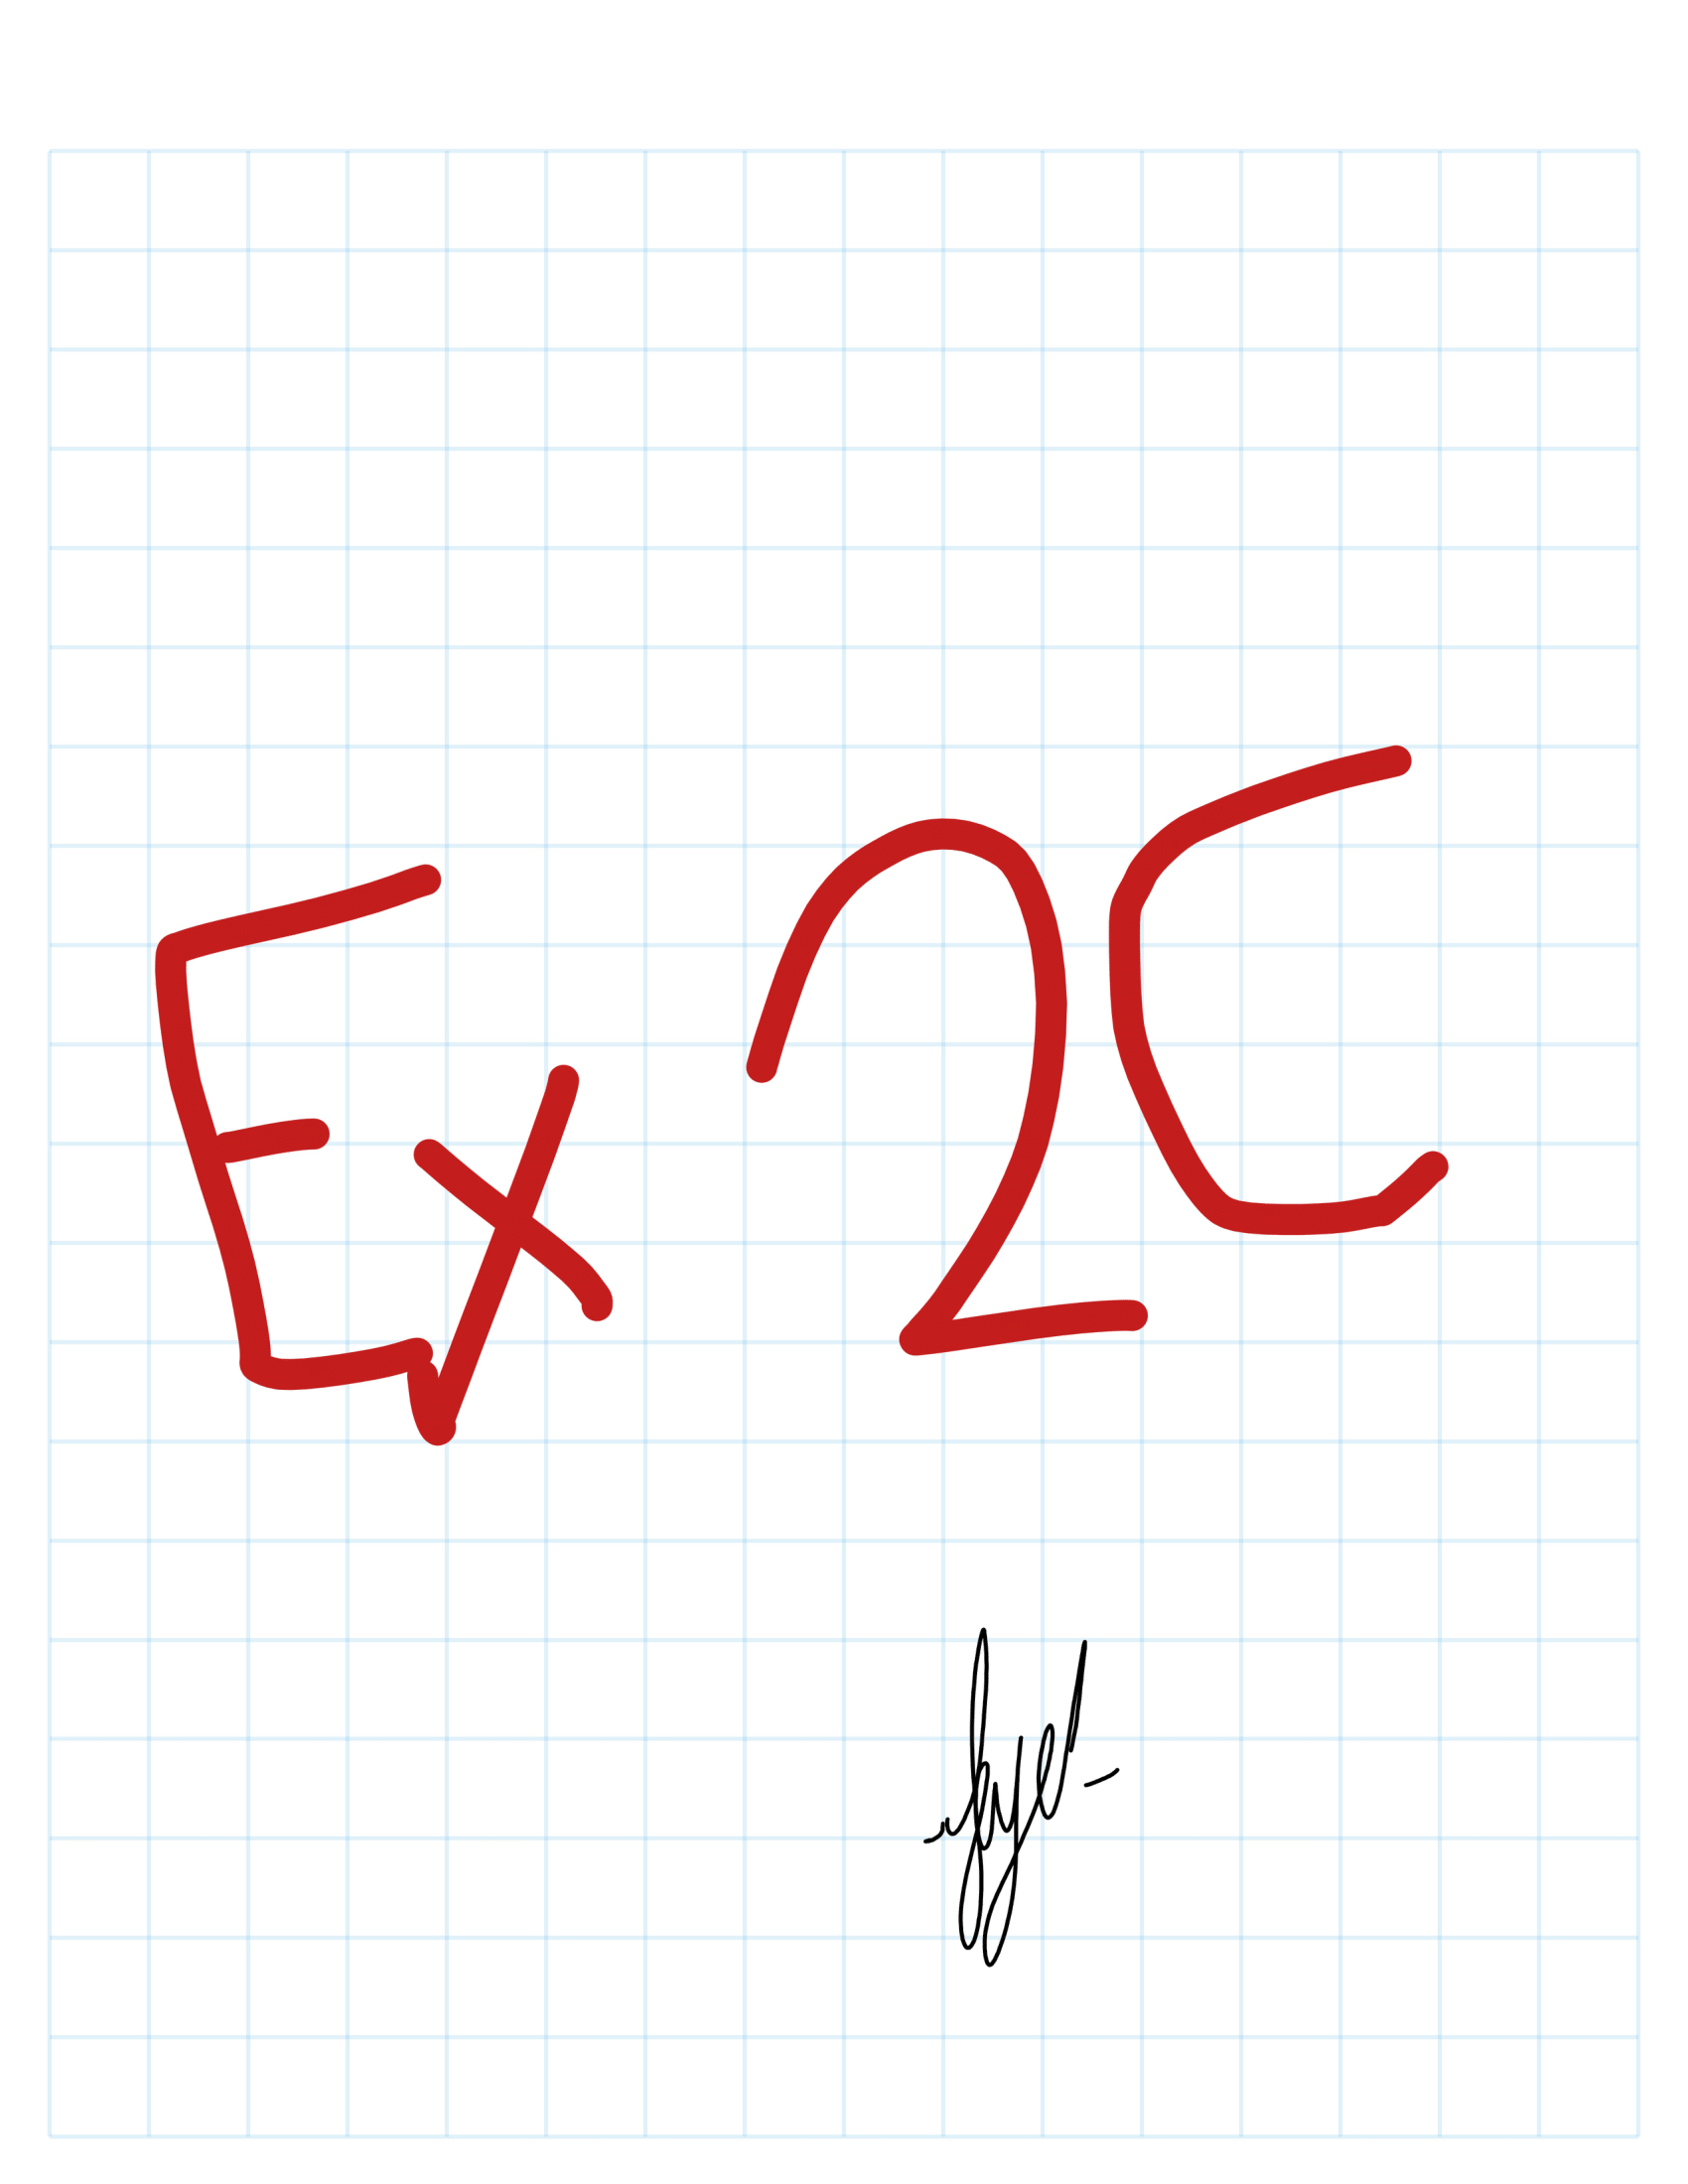 Ex 2C